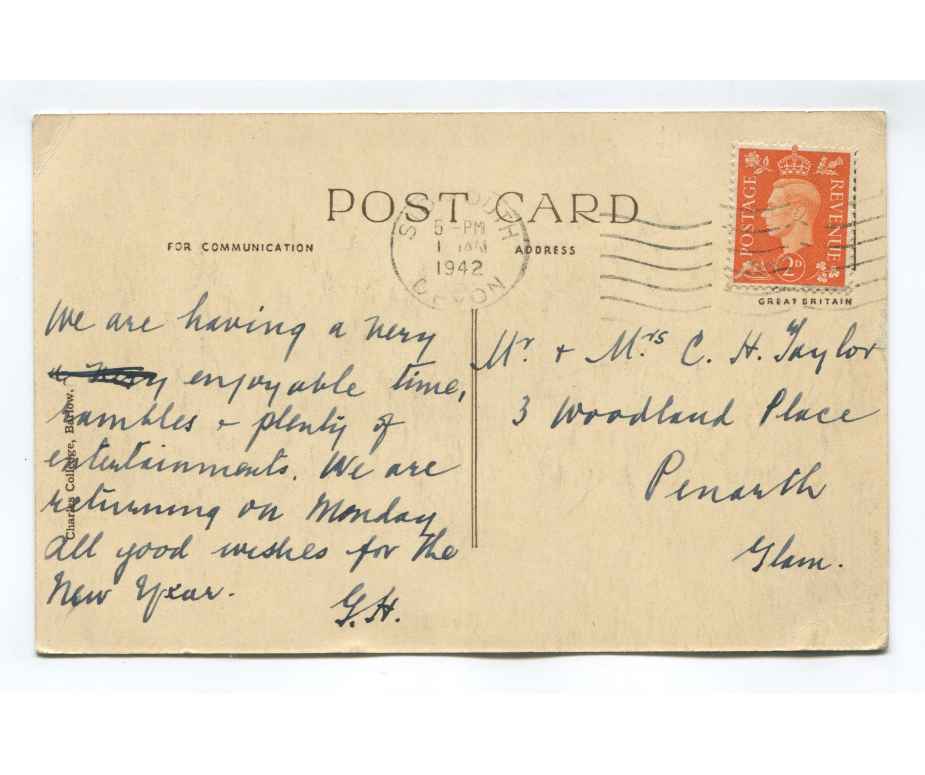 POST CARD
FOR COMMUNICATION
ADDRESS
5 - PM
1 JAN
1942
DEVON
POSTAGE
REVENUE
2D
GREAT BRITAIN
We are having a very
enjoyable time,
rambles + plenty of
entertainments. We are
returning on Monday
All good wishes for the
New Year.
G.H.
Mr. + Mrs C. H. Taylor
3 Woodland Place
Penarth
Glam.
Charles Colledge, Barlow.